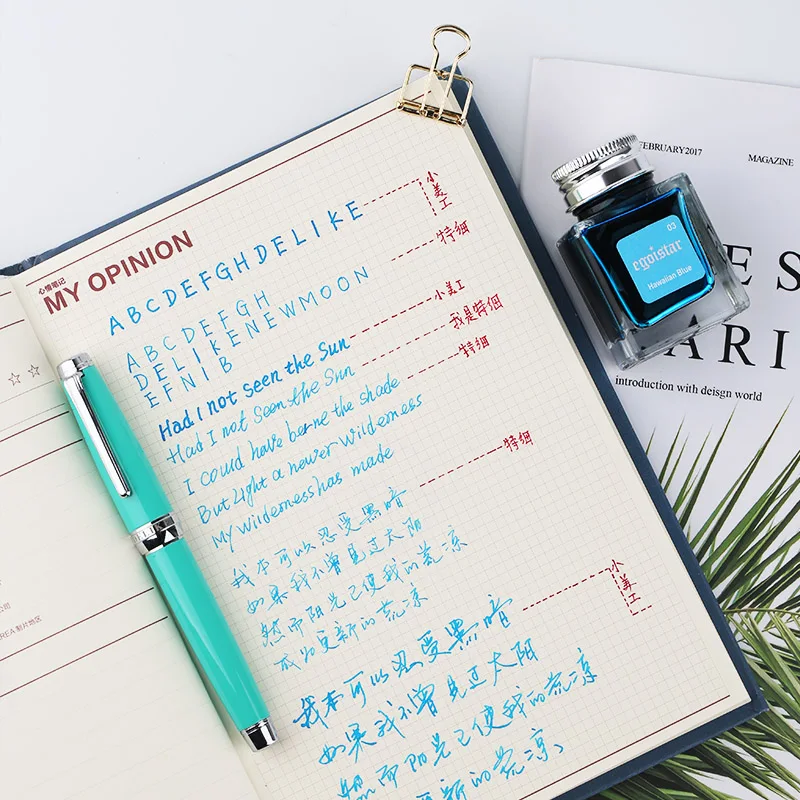 心情笔记
MY OPINION
ABCDEFGHDELIKE
小美工
特细
ABCDEFGH
DELIKENEWMOON
EFNIB
小美工
Had I not seen the Sun
我是特细
Had I not Seen the Sun
特细
I could have borne the shade
But Light a newer Wilderness
My Wilderness has made
特细
我本可以忍受黑暗
如果我不曾见过太阳
然而阳光已使我的荒凉
成为更新的荒凉
小美工
我本可以忍受黑暗
如果我不曾见过太阳
然而阳光已使我的荒凉
更新的荒凉、
FEBRUARY2017
MAGAZINE
03
egoistar
Hawaiian Blue
ES
ARI
introduction with deisgn world
公司
REA 制片地区